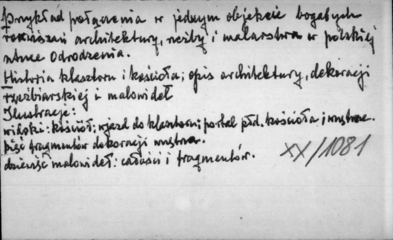 Przykład połączenia w jednym objekcie bogatych
rozwiązań architektury, rzeźby i malarstwa w polskiej
sztuce Odrodzenia.
Historia klasztoru i kościoła; opis architektury, dekoracji
rzeźbiarskiej i malowideł
Ilustracje:
widoki: kościół; wjazd do klasztoru; portal płd. kościoła i wnętrze.
pięć fragmentów dekoracji wnętrza.
dziewięć malowideł: całości i fragmentów.
XX/1081